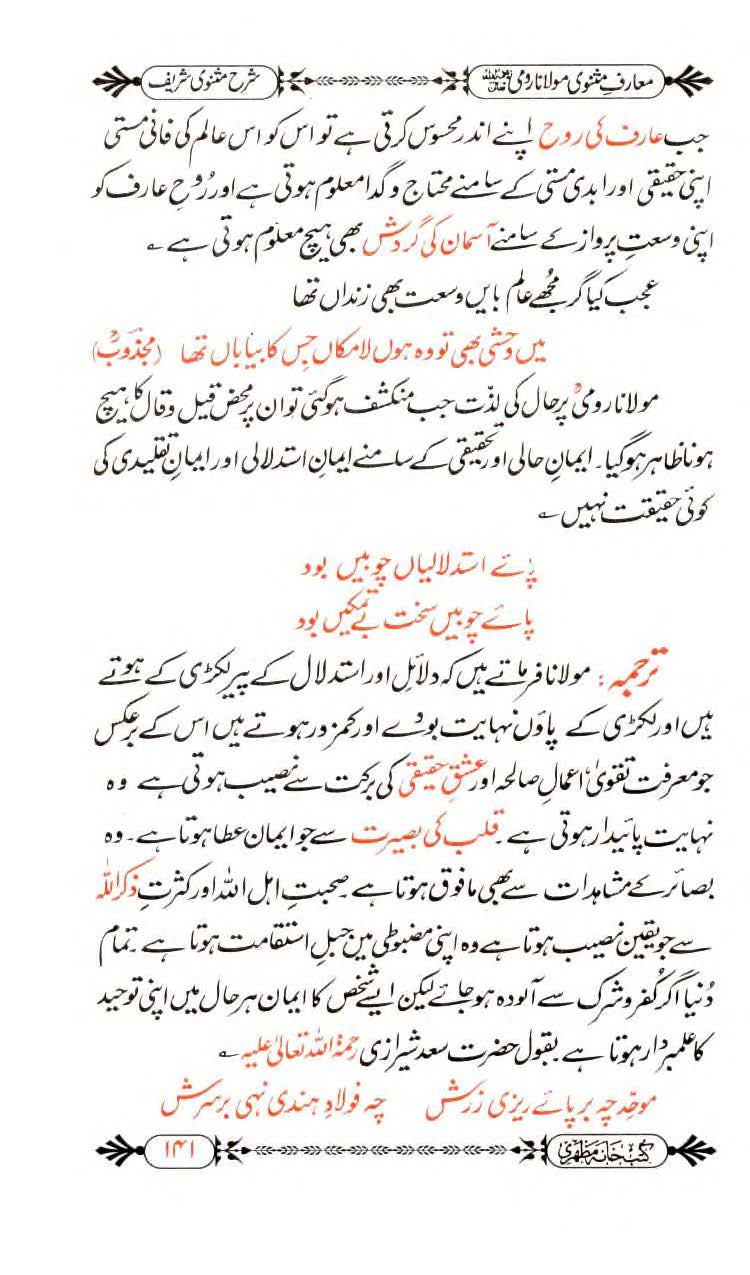 معارفِ مثنوی مولانا رومی رحمۃ اللہ تعالیٰ علیہ
شرح مثنوی شریف
جب عارف کی روح اپنے اندر محسوس کرتی ہے تو اس کو اس عالم کی فانی مستی
اپنی حقیقی اور ابدی مستی کے سامنے محتاج و گدا معلوم ہوتی ہے اور رُوحِ عارف کو
اپنی وسعتِ پرواز کے سامنے آسمان کی گردش بھی ہیچ معلوم ہوتی ہے ؎
عجب کیا گر مجھے عالم بایں وسعت بھی زنداں تھا
میں وحشی بھی تو وہ ہوں لامکاں جس کا بیاباں تھا (مجذوبؒ)
مولانا رومیؒ پر حال کی لذّت جب منکشف ہوگئی تو ان پر محض قیل و قال کا ہیچ
ہونا ظاہر ہوگیا۔ ایمانِ حالی اور تحقیقی کے سامنے ایمانِ استدلالی اور ایمانِ تقلیدی کی
کوئی حقیقت نہیں ؎
پائے استدلالیاں چوبیں بود
پائے چوبیں سخت بے تمکیں بود
ترجمہ: مولانا فرماتے ہیں کہ دلائل اور استدلال کے پیر لکڑی کے ہوتے
ہیں اور لکڑی کے پاؤں نہایت بودے اور کمزور ہوتے ہیں اس کے برعکس
جو معرفت تقویٰ، اعمالِ صالحہ اور عشقِ حقیقی کی برکت سے نصیب ہوتی ہے وہ
نہایت پائیدار ہوتی ہے۔ قلب کی بصیرت سے جو ایمان عطا ہوتا ہے۔ وہ
بصائر کے مشاہدات سے بھی مافوق ہوتا ہے۔ صحبتِ اہل اللہ اور کثرتِ ذکر اللہ
سے جو یقین نصیب ہوتا ہے وہ اپنی مضبوطی میں جبلِ استقامت ہوتا ہے۔ تمام
دُنیا اگر کُفر و شرک سے آلودہ ہو جائے لیکن ایسے شخص کا ایمان ہر حال میں اپنی توحید
کا علمبردار ہوتا ہے بقول حضرت سعد شیرازی رحمۃ اللہ تعالیٰ علیہ ؎
موحّد چہ بر پائے ریزی زرش چہ فولادِ ہندی نہی بر سرش
کتب خانہ مظہری
۱۴۱